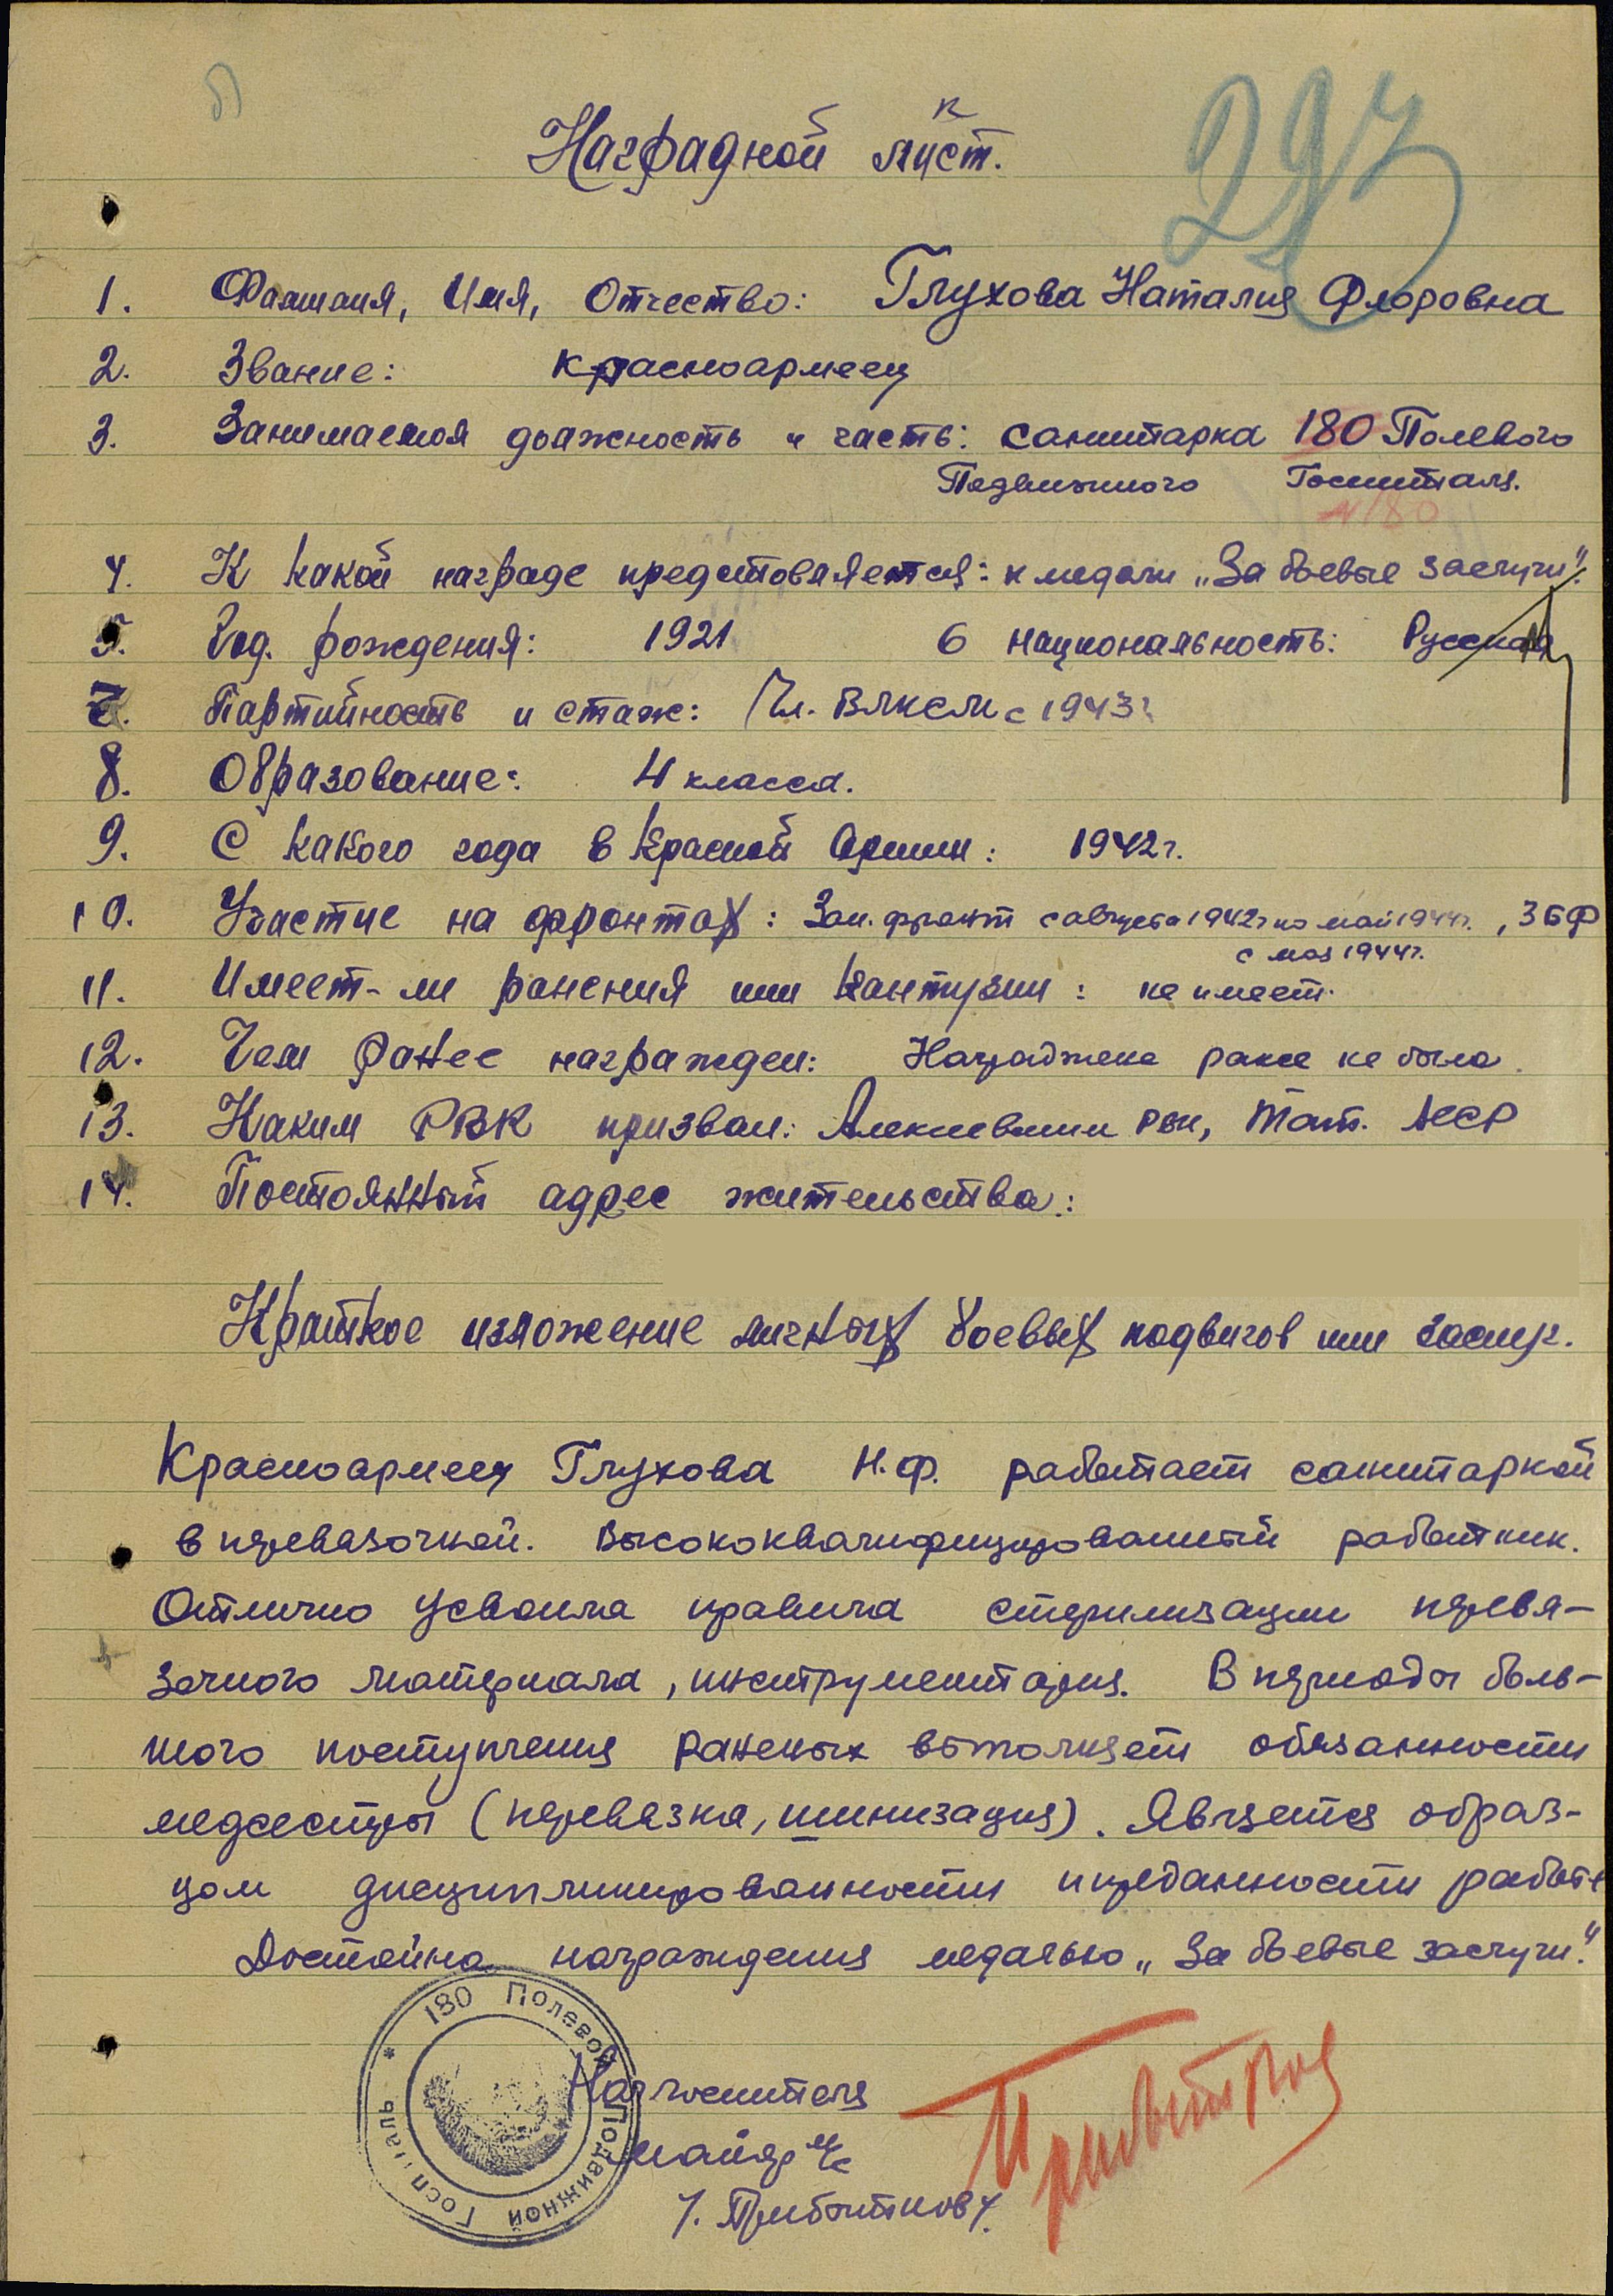 Наградной лист.
к
297
1. Фамилия, Имя, Отчество: Глухова Наталия Флоровна
2. Звание: красноармеец
3. Занимаемая должность и часть: санитарка 180 Полевого
Подвижного Госпиталя.
№180
4. К какой награде представляется: к медали „За боевые заслуги".
5. Год. рождения: 1921 6 национальность: Русская
7. Партийность и стаж: Чл. ВЛКСМ с 1943г
8. Образование: 4 класса.
9. С какого года в Красной Армии: 1942г.
10. Участие на фронтах: Зап. фронт с августа 1942г по май 1944г., 3БФ
с мая 1944г.
11. Имеет-ли ранения или контузии: не имеет.
12. Чем ранее награжден: Награждена ранее не была.
13. Каким РВК призван: Алексеевским РВК, Тат. АССР
14. Постоянный адрес жительства:
Краткое изложение личных боевых подвигов или заслуг.
Красноармеец Глухова Н.Ф. работает санитаркой
в перевязочной. Высококвалифицированный работник.
Отлично усвоила правила стерилизации перевя-
зочного материала, инструментария. В периоды боль-
шого поступления раненых выполняет обязанности
медсестры (перевязка, шинизация). Является образ-
цом дисциплинированности и преданности работе
Достойна награждения медалью „За боевые заслуги".
180 Полевой Подвижной Госпиталь
Нач госпиталя
майор м/с
Прибытков